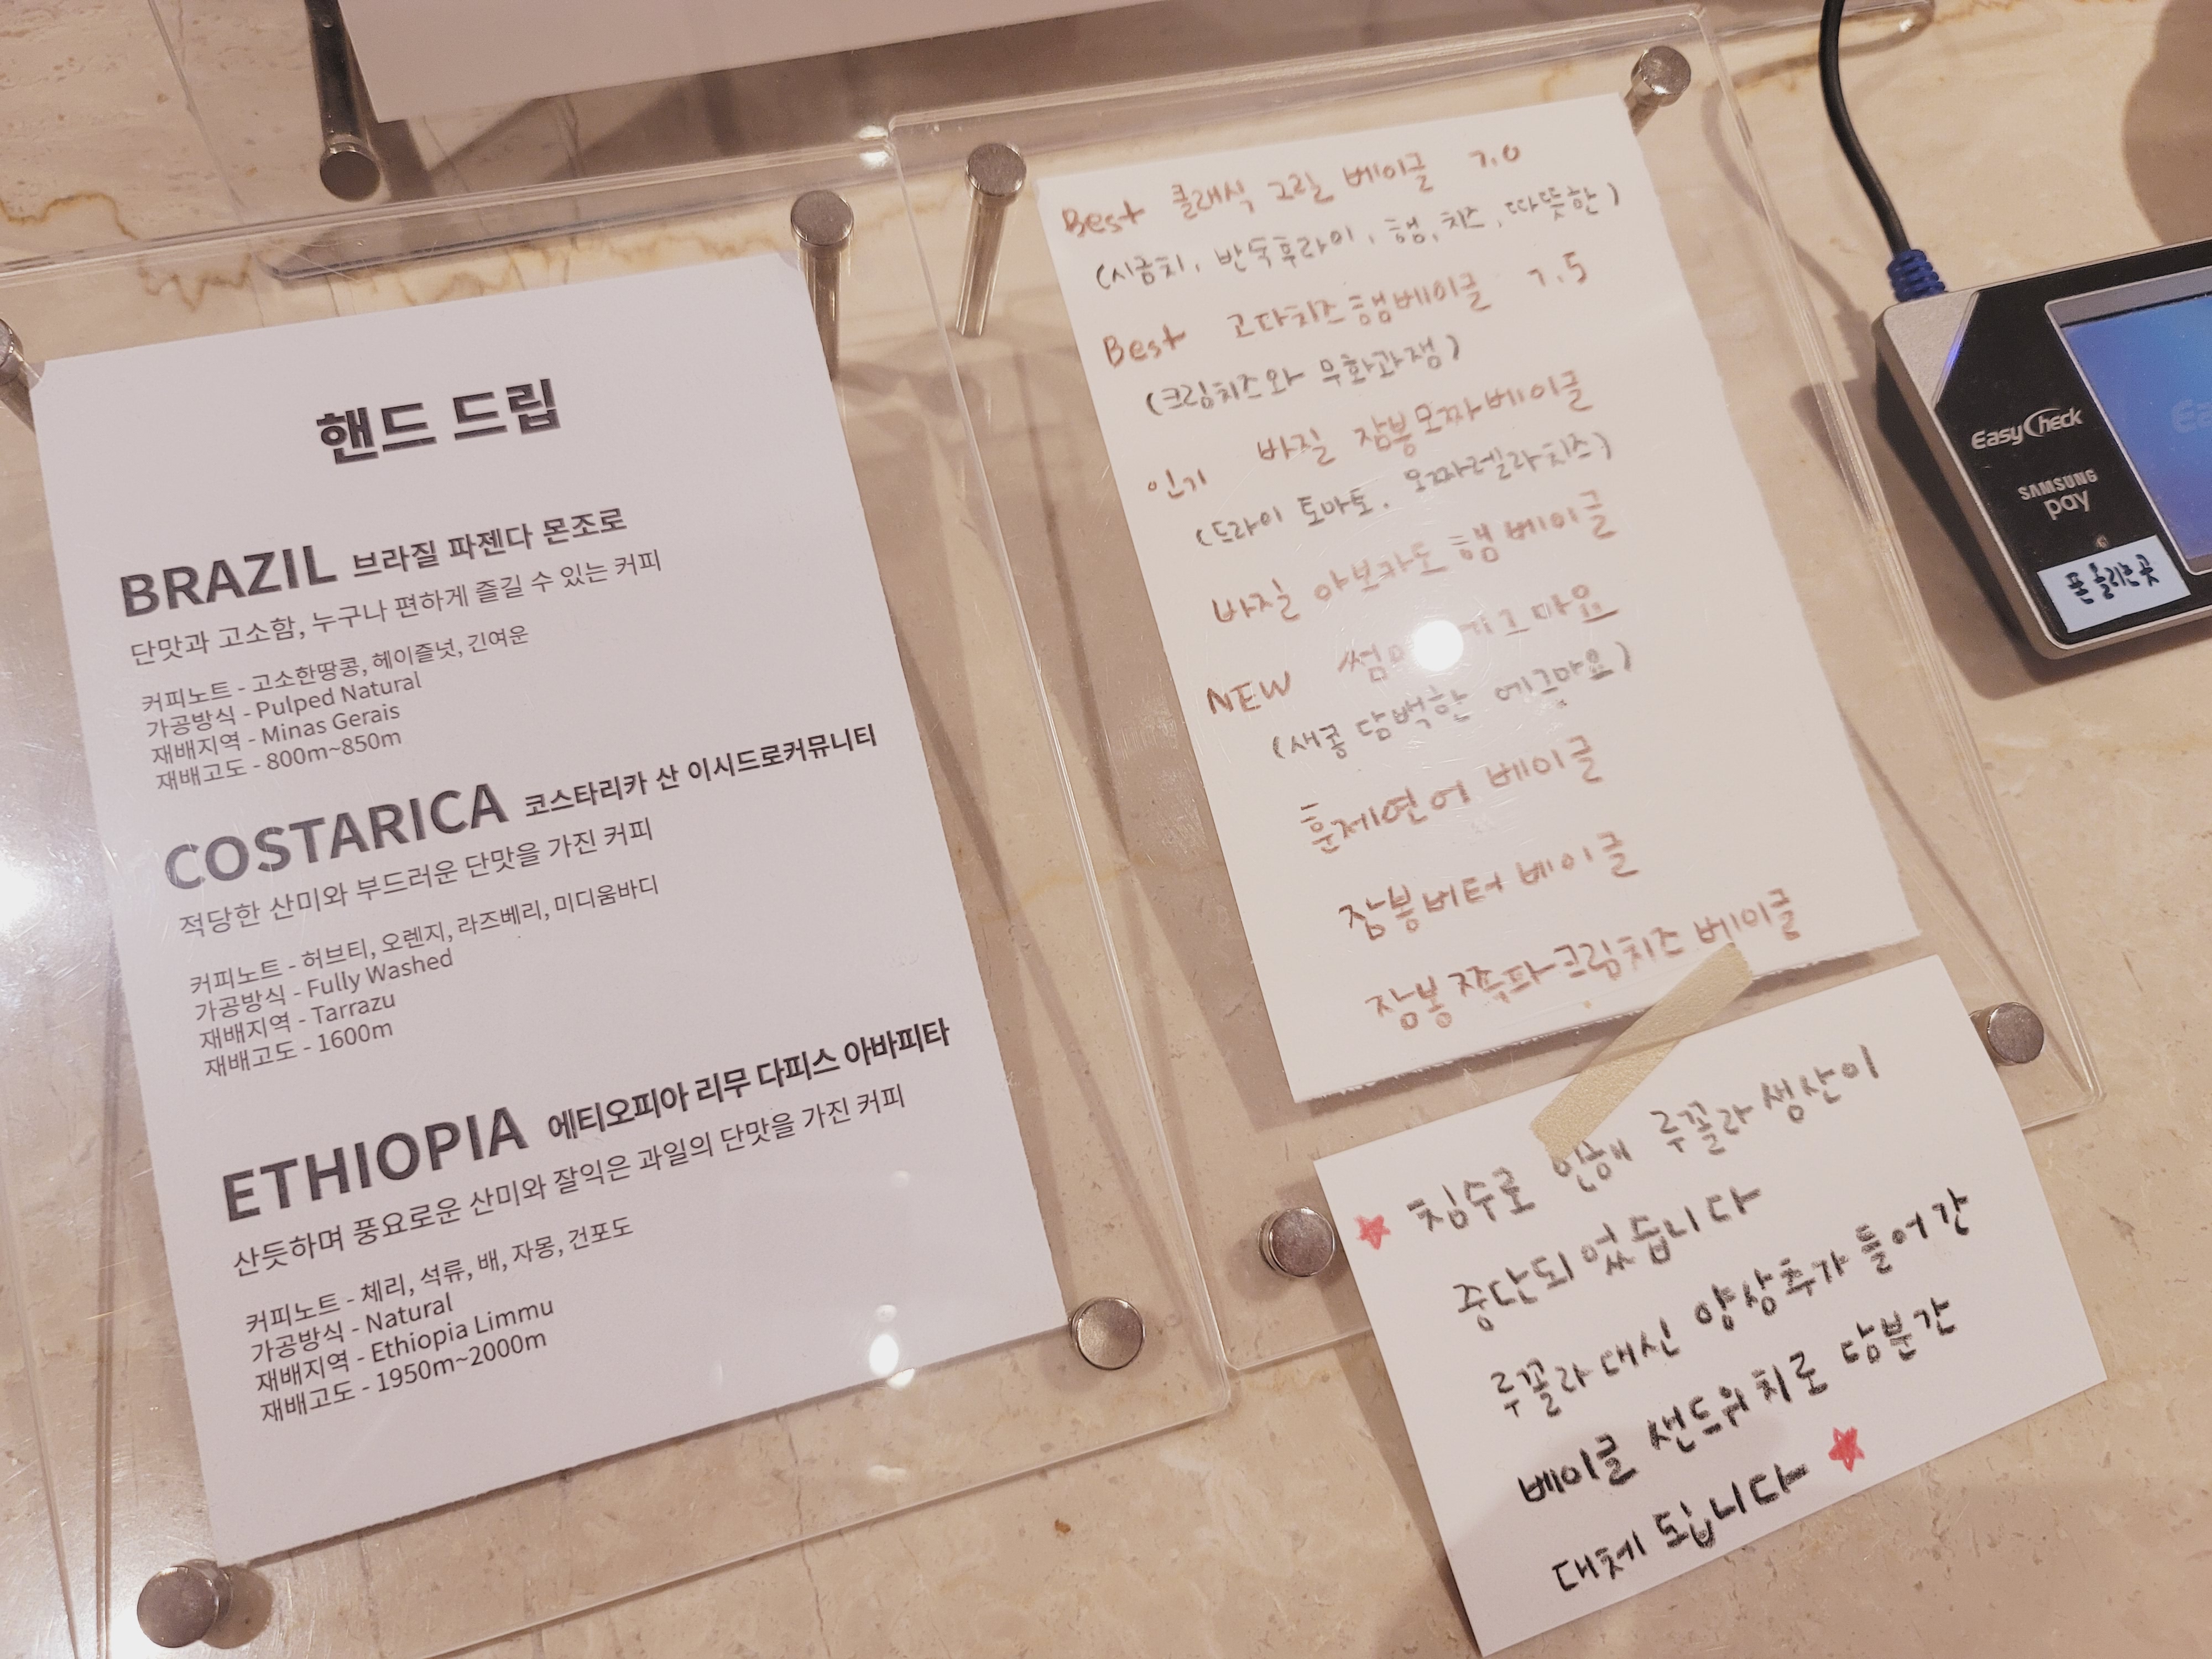 핸드 드립
BRAZIL 브라질 파젠다 몬조로
단맛과 고소함, 누구나 편하게 즐길 수 있는 커피
커피노트 - 고소한땅콩, 헤이즐넛, 긴여운
가공방식 - Pulped Natural
재배지역 - Minas Gerais
재배고도 - 800m~850m
COSTARICA 코스타리카 산 이시드로커뮤니티
적당한 산미와 부드러운 단맛을 가진 커피
커피노트 - 허브티, 오렌지, 라즈베리, 미디움바디
가공방식 - Fully Washed
재배지역 - Tarrazu
재배고도 - 1600m
ETHIOPIA 에티오피아 리무 다피스 아바피타
산듯하며 풍요로운 산미와 잘익은 과일의 단맛을 가진 커피
커피노트 - 체리, 석류, 배, 자몽, 건포도
가공방식 - Natural
재배지역 - Ethiopia Limmu
재배고도 - 1950m~2000m
Best 클래식 그릴 베이글 7.0
(시금치, 반숙후라이, 햄, 치즈, 따뜻한)
Best 고다치즈햄베이글 7.5
(크림치즈와 무화과잼)
인기 바질 잠봉모짜베이글
(드라이 토마토, 모짜렐라치즈)
바질 아보카도 햄 베이글
NEW 마요
(새콤 담백한 에그마요)
훈제연어 베이글
잠봉버터 베이글
잠봉 쪽파크림치즈 베이글
★ 침수로 인해 루꼴라 생산이
중단되었습니다
루꼴라 대신 양상추가 들어간
베이글 샌드위치로 당분간
대체 됩니다 ★
EasyCheck
SAMSUNG
pay
폰 올리는 곳